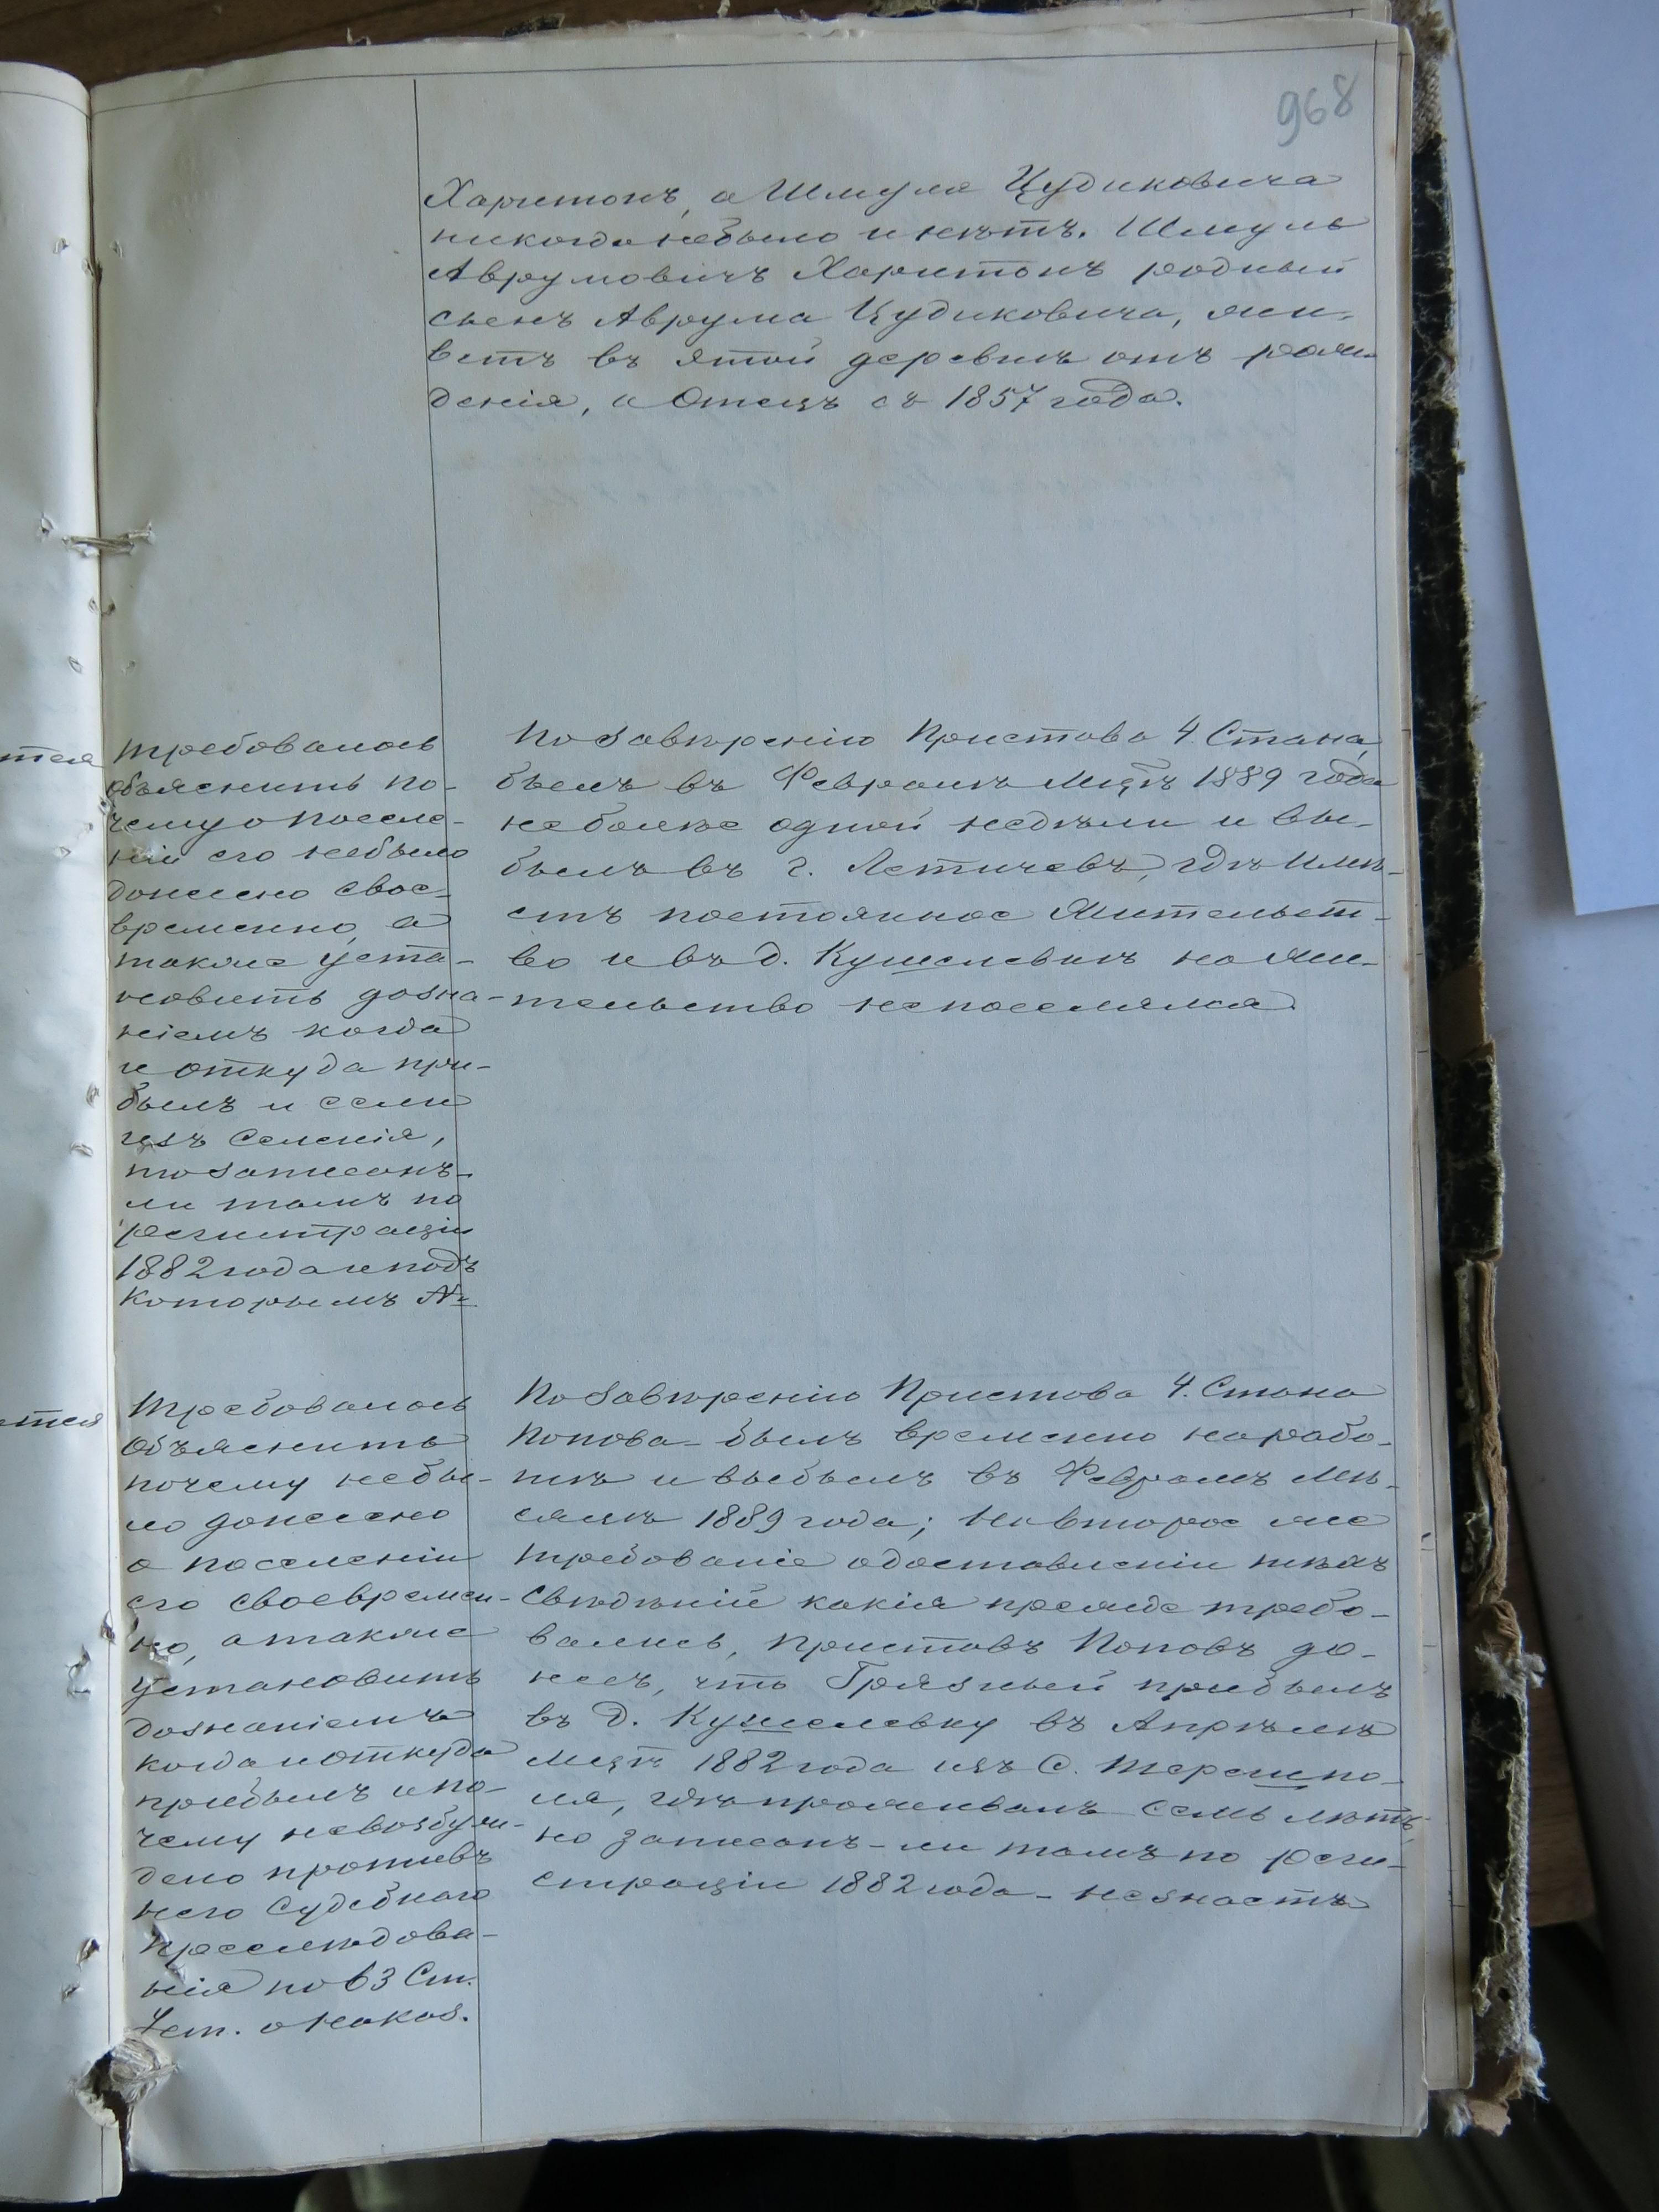 968
Харитонъ, а Шмуля Цудиковича
никогда небыло и нѣтъ. Шмуль
Аврумовичъ Харитонъ родный
сынъ Аврума Цудиковича, жи-
ветъ въ этой деревнѣ отъ рож-
денія, а Отецъ съ 1857 года.
тся
Требовалось
объяснить по-
чему о поселе-
ніи его небыло
донесено свое-
временно, а
также уста-
новить дозна-
ніемъ когда
и откуда при-
былъ и если
изъ Селенія,
то записанъ-
ли тамъ по
регистраціи
1882 года и подъ
которымъ №
По завѣренію Пристава 4. Стана,
былъ въ Февралѣ Мцѣ 1889 года
не болѣе одной недѣли и вы-
былъ въ г. Летичевъ, гдѣ имѣ-
етъ постоянное жительст-
во и въ д. Кушелевкѣ на жи-
тельство непоселялся.
тся
Требовалось
Объяснить
почему небы-
ло донесено
о поселеніи
его своевремен-
но, а также
установить
дознаніемъ
когда и откуда
прибылъ и по-
чему невозбуж-
дено противъ
него Судебнаго
преслѣдова-
нія по 63 Ст.
Уст. о наказ.
По завѣренію Пристава 4. Стана
Попова - былъ временно на рабо-
тѣ и выбылъ въ Февралѣ Мѣ-
сяцѣ 1889 года; На второе же
требованіе о доставленіи тѣхъ
свѣдѣній какія прежде требо-
вались, Приставъ Поповъ до-
несъ, что Грязный прибылъ
въ д. Кушелевку въ Апрѣлѣ
Мцѣ 1882 года изъ С. Терешпо-
ля, гдѣ проживалъ семь лѣтъ,
но записанъ-ли тамъ по реги-
страціи 1882 года - незнаетъ